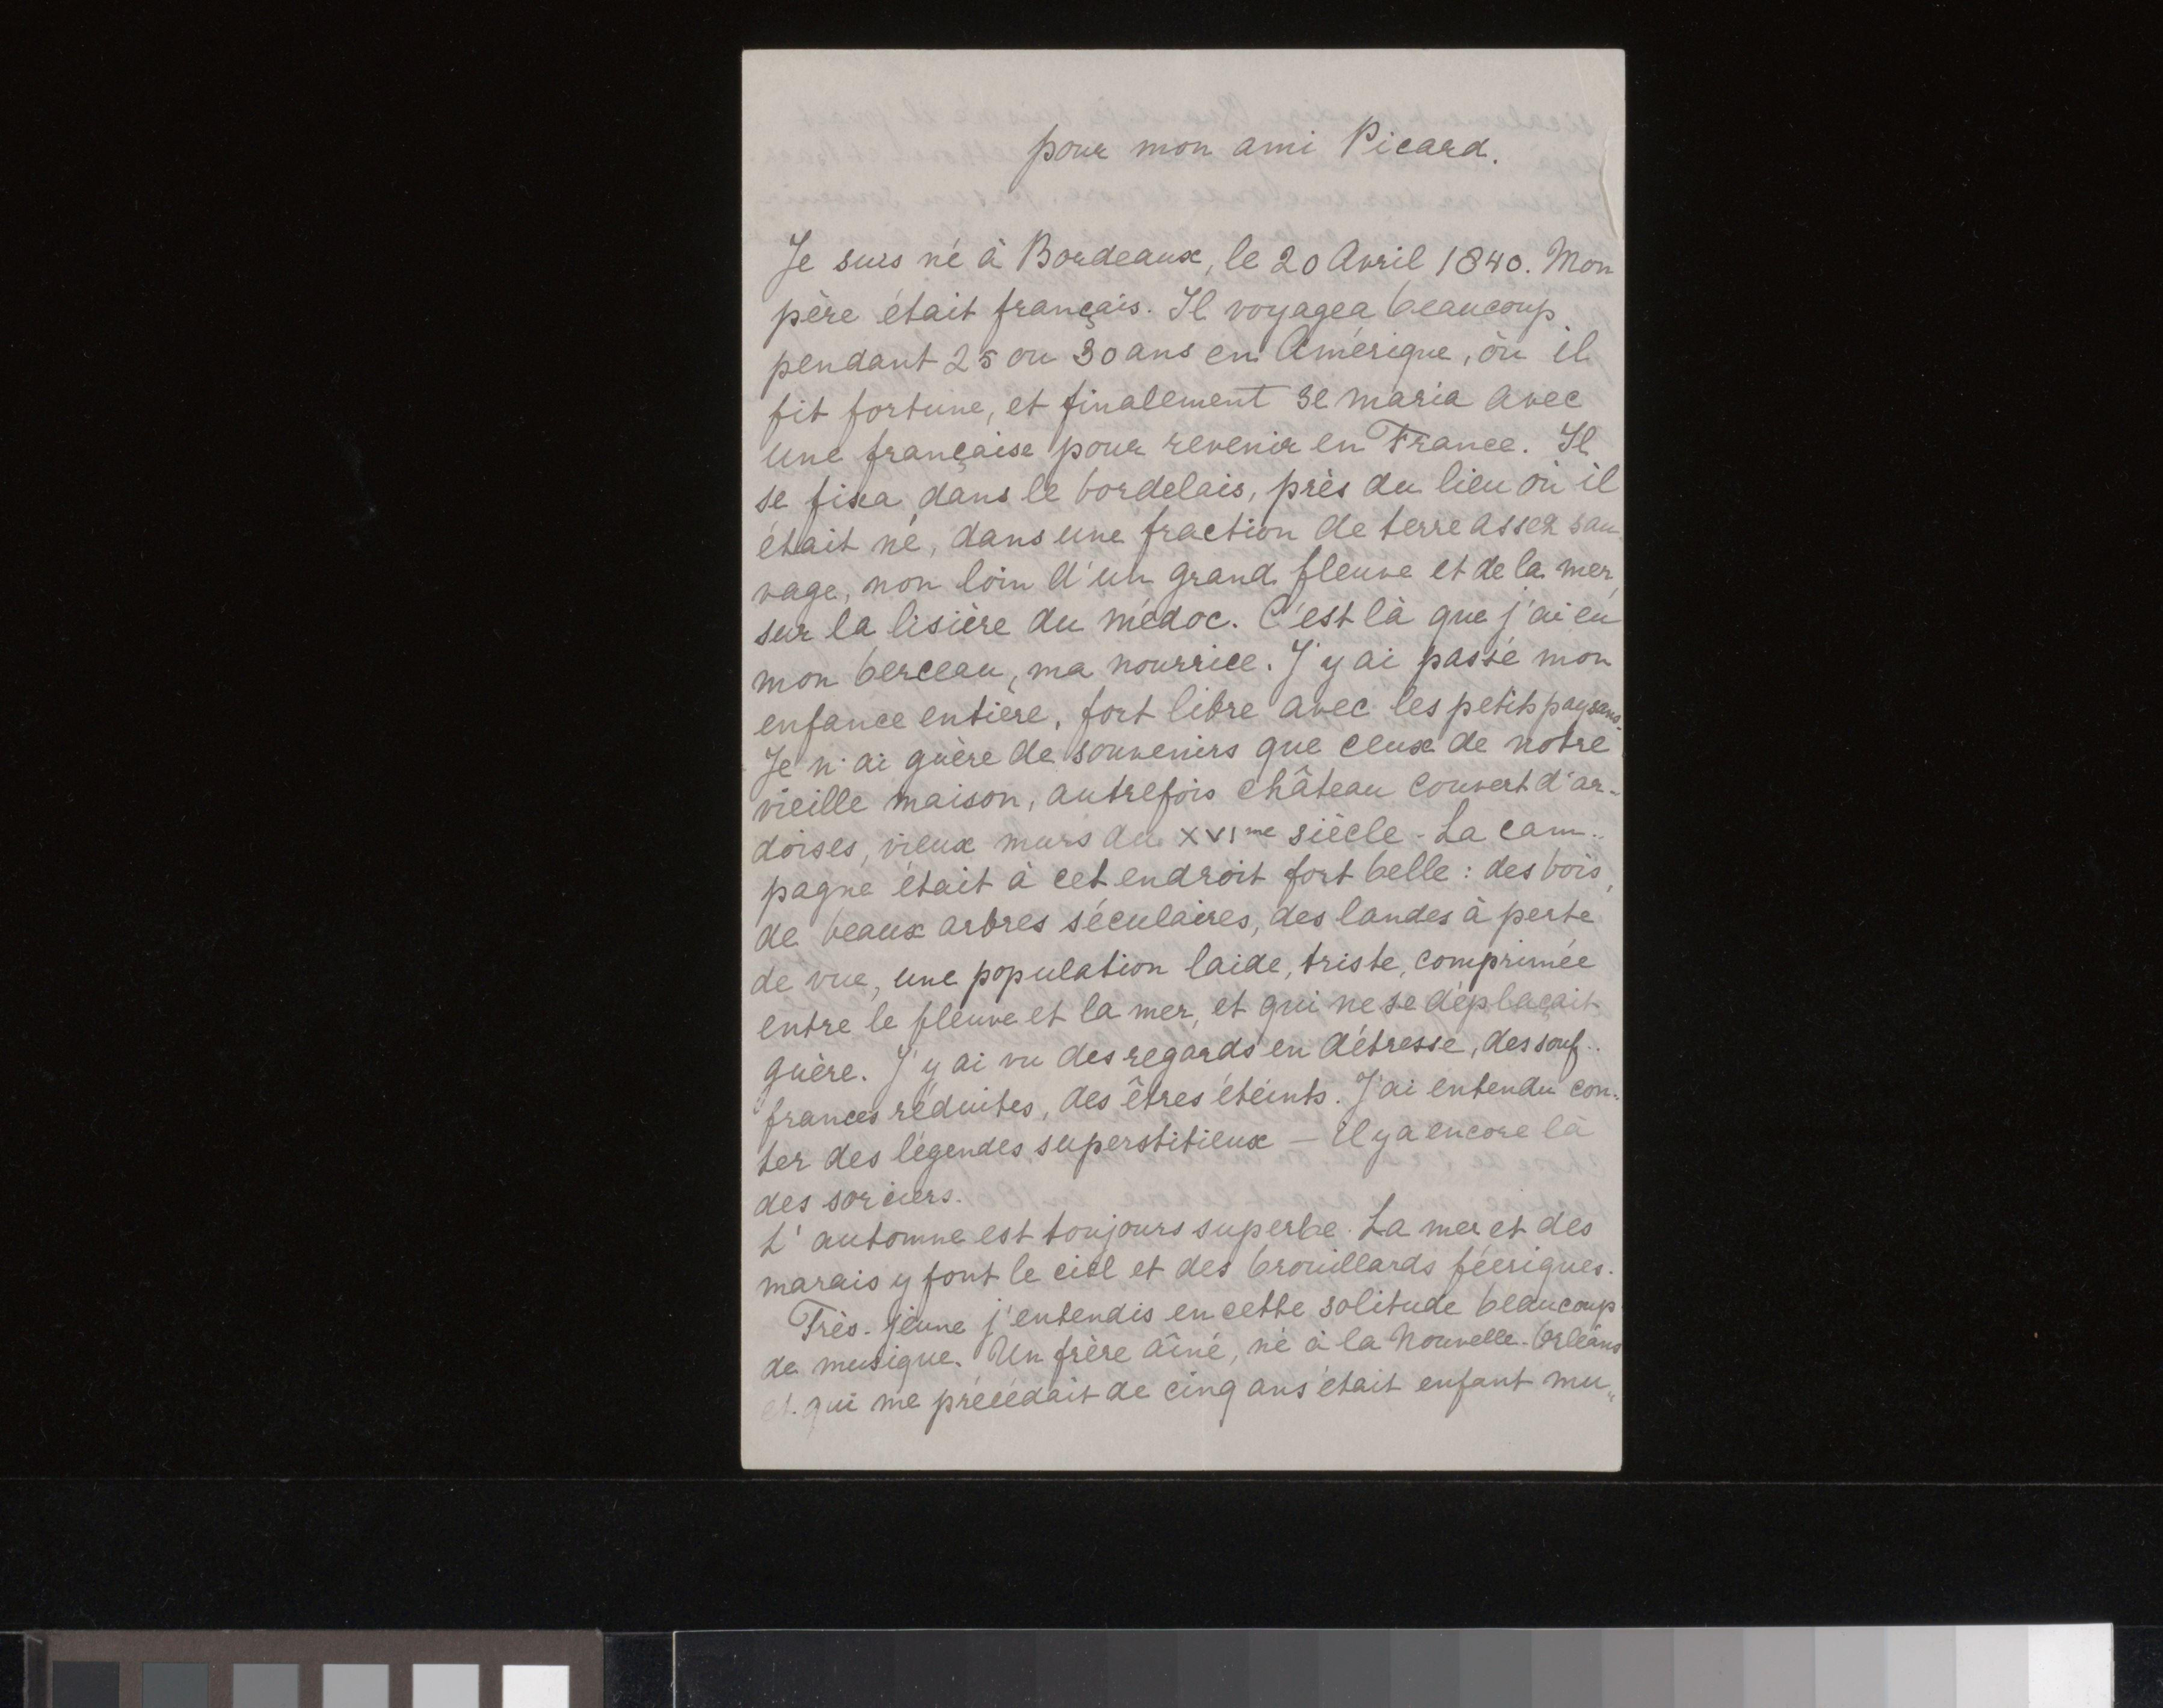 pour mon ami Picard.
Je suis né à Bordeaux, le 20 Avril 1840. Mon
père était français. Il voyagea beaucoup
pendant 25 ou 30 ans en Amérique, où il
fit fortune, et finalement se maria avec
une française pour revenir en France. Il
se fixa dans le bordelais, près du lieu où il
était né, dans une fraction de terre assez sau
vage, non loin d'un grand fleuve et de la mer,
sur la lisière du médoc. C'est là que j'ai eu
mon berceau, ma nourrice. J'y ai passé mon
enfance entière, fort libre avec les petits paysans.
Je n'ai guère de souvenirs que ceux de notre
vieille maison, autrefois château couvert d'ar-
doises, vieux murs du XVIme siècle. La cam-
pagne était à cet endroit fort belle : des bois,
de beaux arbres séculaires, des landes à perte
de vue, une population laide, triste, comprimée
entre le fleuve et la mer, et qui ne se déplaçait
guère. J'y ai vu des regards en détresse, des souf-
frances réduites, des êtres éteints. J'ai entendu con-
ter des légendes superstitieux — Il y a encore là
des sorciers.
L'automne est toujours superbe. La mer et des
marais y font le ciel et des brouillards féeriques.
Très-jeune j'entendis en cette solitude beaucoup
de musique. Un frère aîné, né à la Nouvelle-Orléans
et qui me précédait de cinq ans était enfant mu-